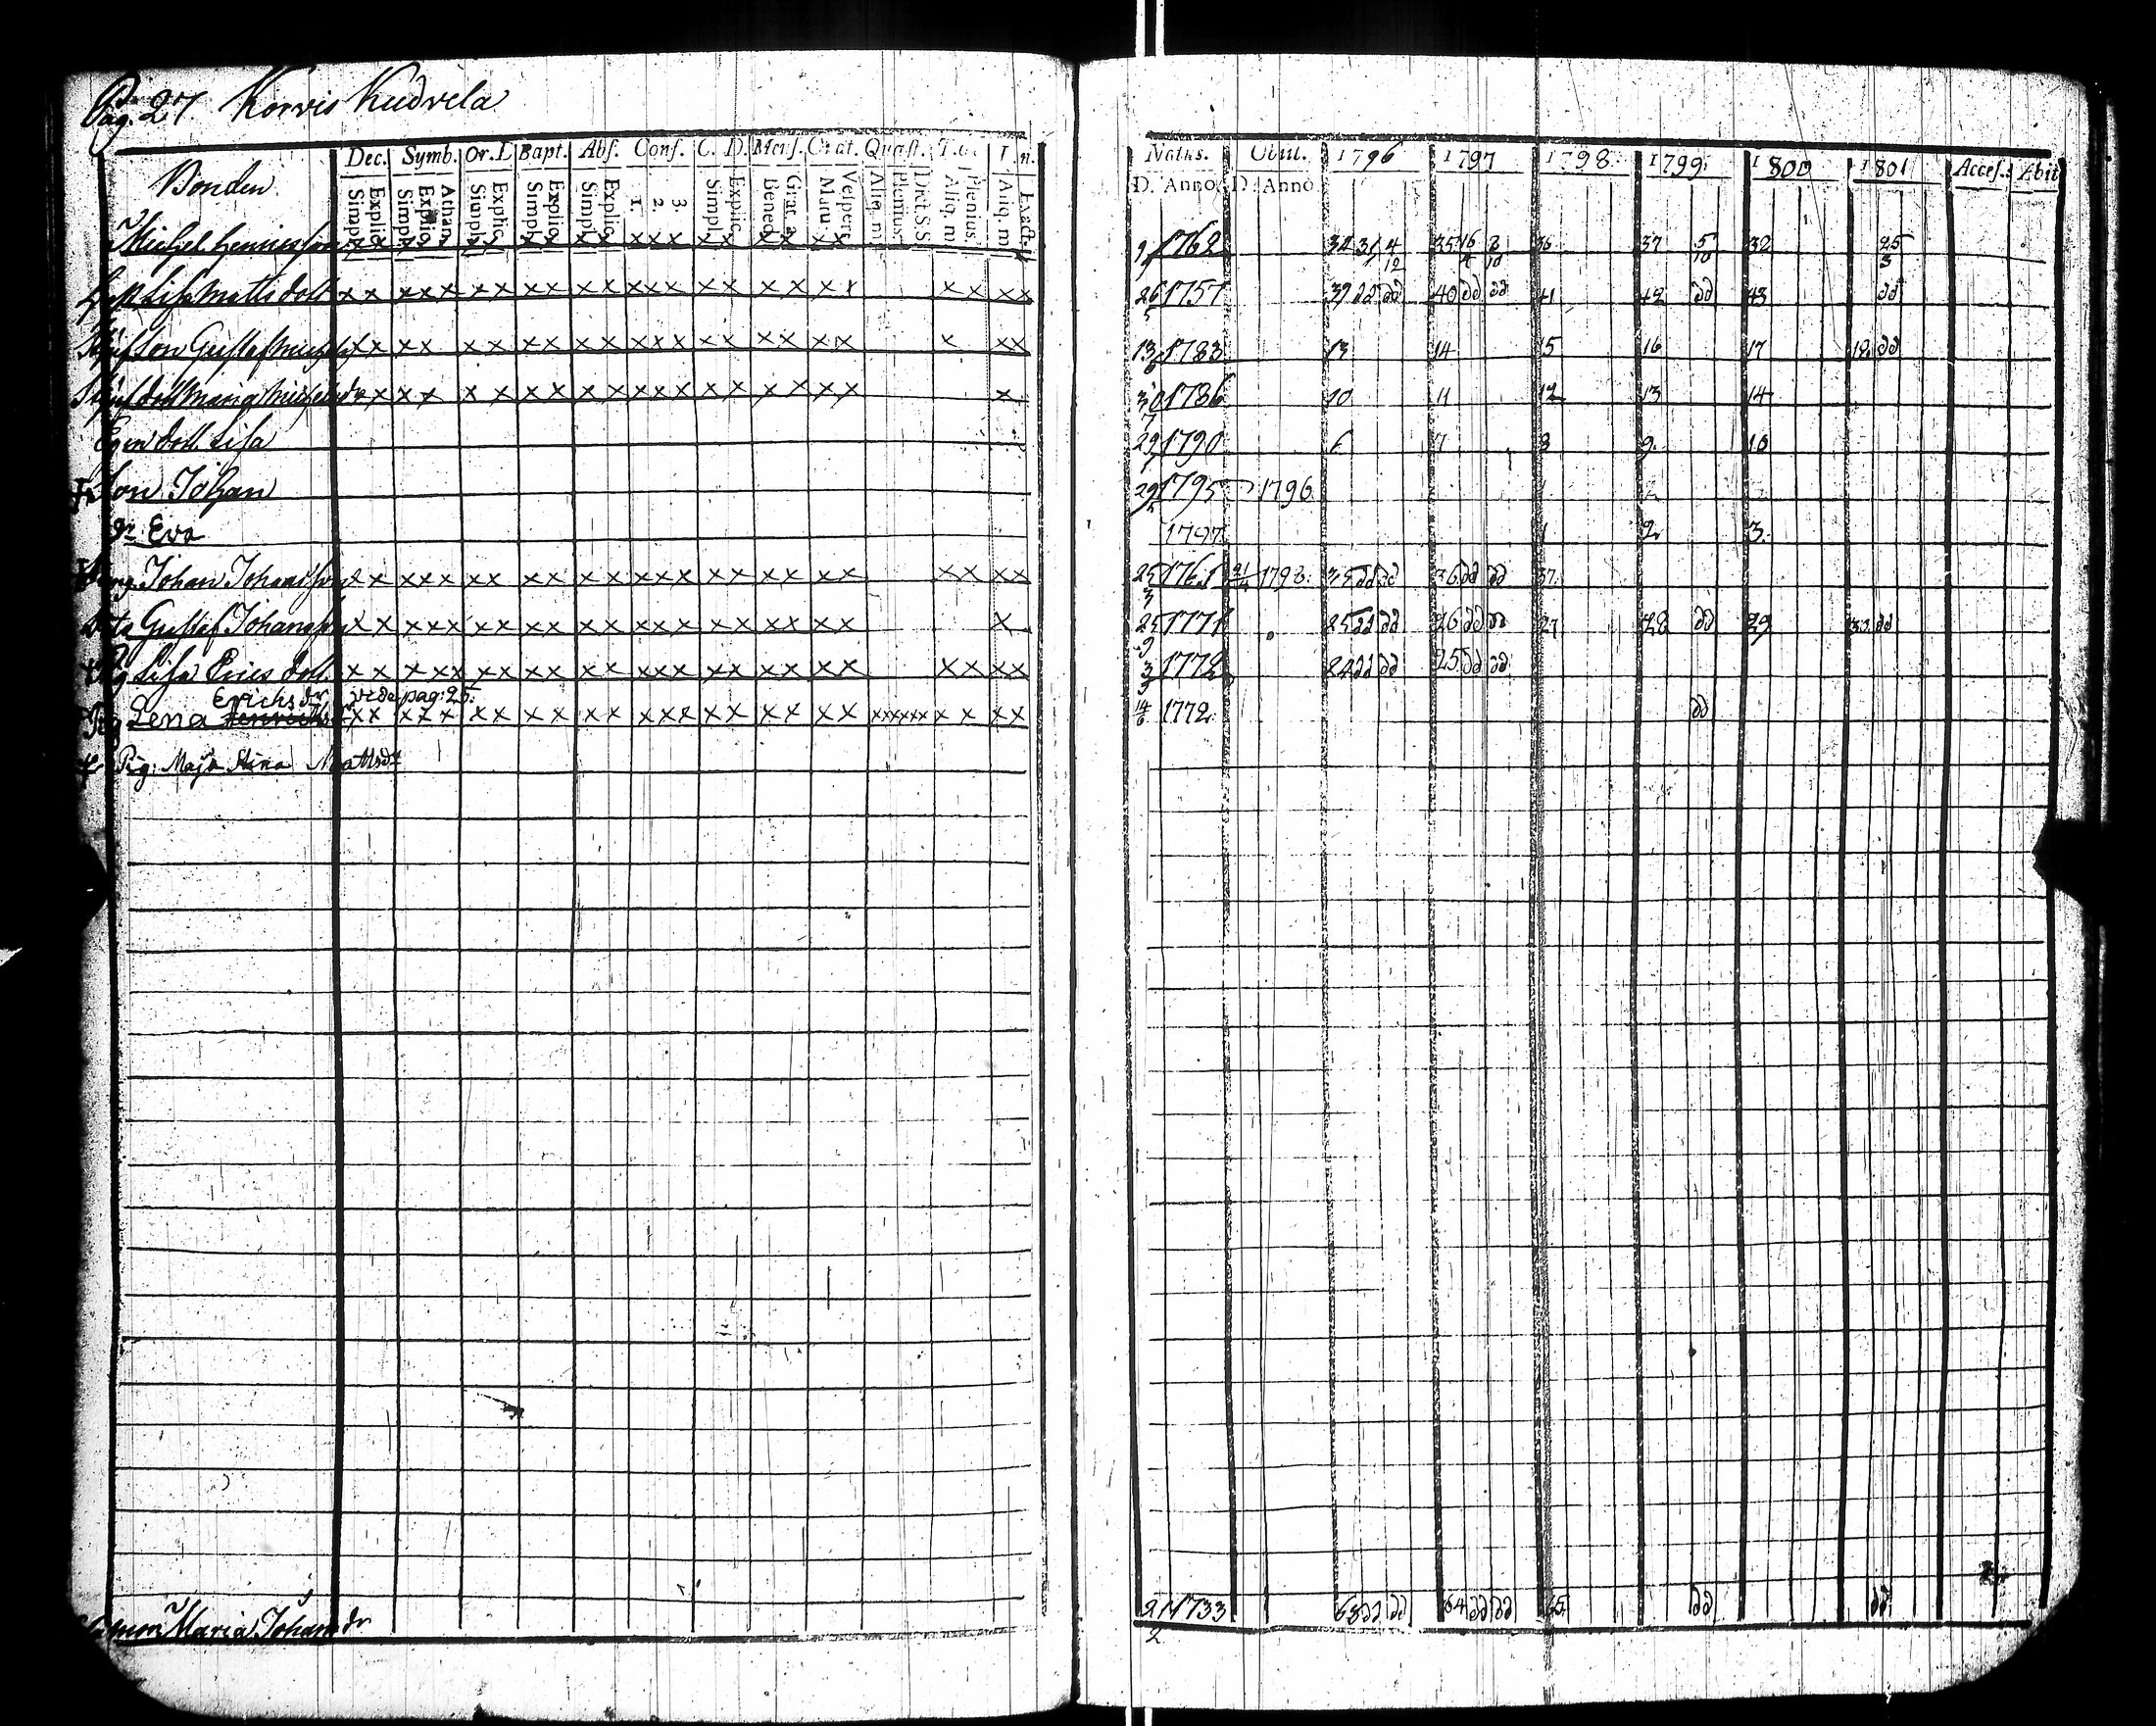 Pag. 27. Korvis Kudvela
Dec. Symb. Or. D Bapt. Abs. Conf. C. D. Mens. Grat. Quæst.
Bonden
Simpl. Explic. Simpl. Explic. Athan. Simpl. Explic. Simpl. Explic. Simpl. Explic. 1. 2. 3. Simpl. Explic. Bened. Grat. a. Matu. Vespere Aliq. m Plenius. Dict. S.S. Aliq. m. Plenius. Aliq. m. Exact.
Natus. Obiit. 1796 1797 1798 1799. 1800 1801 Access. Abit
D. Anno. D. Anno
Michel x x x x x x x x x x x x x x x x x x x 1762 34 31/1 4/12 35 16/4 8/10 36 37 5/10 38 25/3
Lisa Matts dott. x x x x x x x x x x x x x x x x x x x x x x x 26/5 1757 39 dd dd 40 dd dd 41 42 dd 43 dd
Styfson Gustaf x x x x x x x x x x x x x x x x x x x x x 13/6 1783 13 14 15 16 17 18 dd
Styfdott. Maria x x x x x x x x x x x x x x x x x x x 30/7 1786 10 11 12 13 14
Egen dott. Lisa 29 1790 6 7 8 9. 10
Son Johan 29 1795 1796
Dr. Eva 1797. 1 2. 3.
Dräng Johan Johansson x x x x x x x x x x x x x x x x x x x x x x x 25/3 1761 21/4 1798. 35 dd dd 36 dd dd 37.
Gustaf Johansson x x x x x x x x x x x x x x x x x x x x 25/9 1771 25 dd dd 26 dd dd 27 28 dd 29 30. dd
Pig Lisa Erics dott. x x x x x x x x x x x x x x x x x x x x x x x 3/3 1772 24 dd dd 25. dd dd
Erichs dr vide pag: 25.
Pig Lena x x x x x x x x x x x x x x x x x x x xxxxxx x x x x 14/6 1772. dd
Pig: Maja Stina Mattsdr
mor Maria Johansdr 21/2 1733 63 dd dd 64 dd dd 65. dd dd